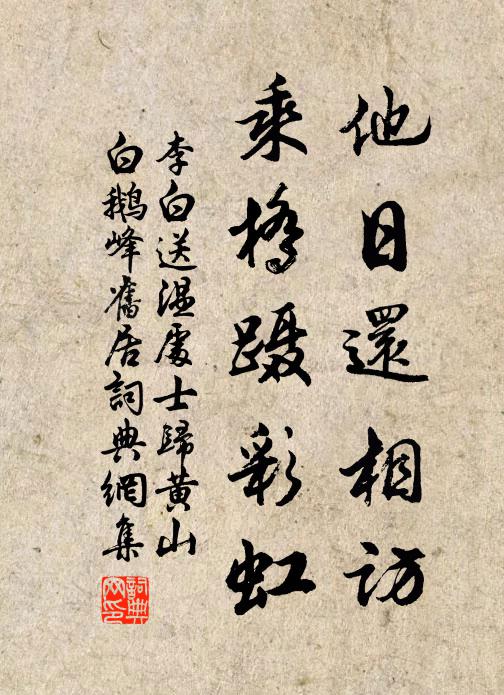 他日還相訪
乘橋躡彩虹
李白送溫處士歸黃山
白鵝峰舊居詞典網集
詞典
网印